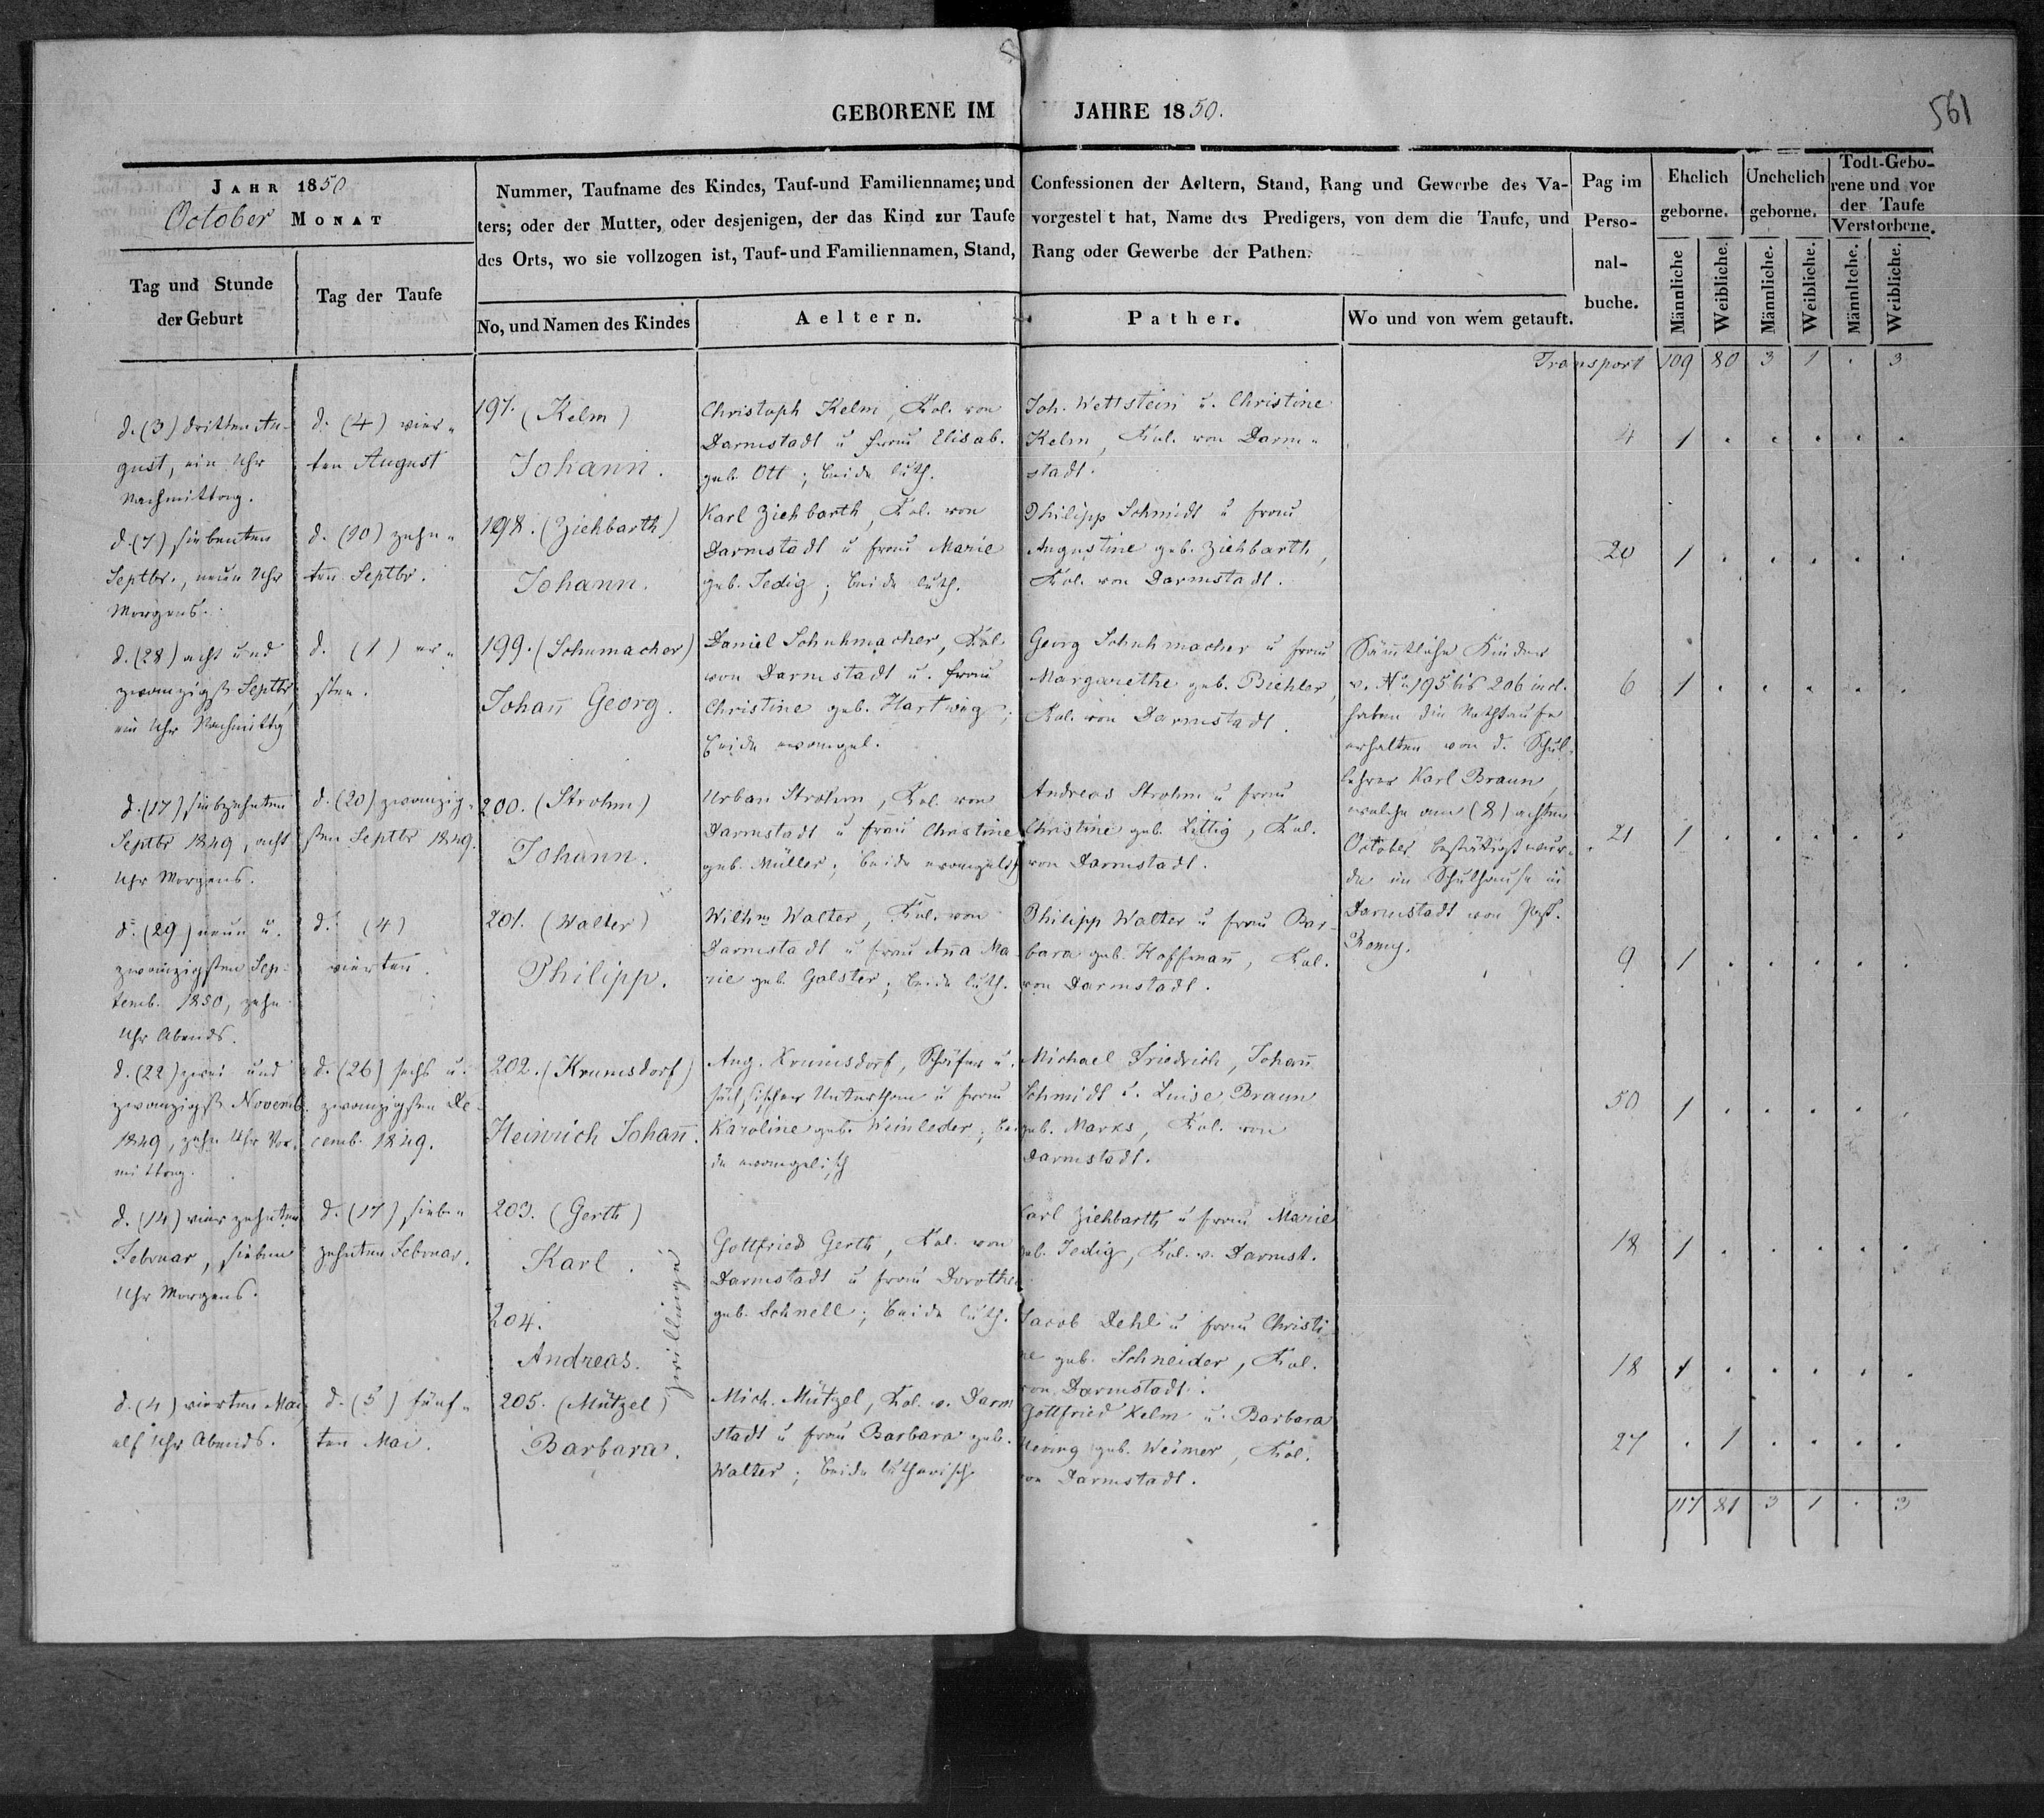 GEBORENE IM JAHRE 1850.
561
JAHR 1850
October MONAT
Tag und Stunde
der Geburt
Tag der Taufe
Nummer, Taufname des Kindes, Tauf-und Familienname; und Confessionen der Aeltern, Stand, Rang und Gewerbe des Va-
ters; oder der Mutter, oder desjenigen, der das Kind zur Taufe vorgestellt hat, Name des Predigers, von dem die Taufe, und
des Orts, wo sie vollzogen ist, Tauf-und Familiennamen, Stand, Rang oder Gewerbe der Pathen.
No, und Namen des Kindes
Aeltern.
Pather.
Wo und von wem getauft.
Pag im
Perso-
nal-
buche.
Ehelich
geborne.
Unehelich
geborne.
Todt-Gebo-
rene und vor
der Taufe
Verstorbene.
Männliche
Weibliche.
Männliche.
Weibliche.
Männliche.
Weibliche.
Transport 109 80 3 1 . 3
d. (3) dritten Au-
gust, ein Uhr
Nachmittag.
d. (4) vier-
ten August
197. (Kelm)
Johann.
Christoph Kelm, Kol. von
Darmstadt u frau Elisab.
geb. Ott; beide luth.
Joh. Wettstein u. Christine
Kelm, Kol. von Darm-
stadt.
4 1 . . . . .
d. (7) siebenten
Septbr., neun Uhr
Morgens.
d. (10) zehn-
ten Septbr.
198. (Ziehbarth)
Johann.
Karl Ziehbarth, Kol. von
Darmstadt u frau Marie
geb. Jedig; beide luth.
Philipp Schmidt u frau
Augustine geb. Ziehbarth,
Kol. von Darmstadt.
20 1 . . . . .
d. (28) acht und
zwanzigst Septbr,
ein Uhr Nachmittg
d. (1) er-
sten.
199. (Schumacher)
Johan̄ Georg.
Daniel Schuhmacher, Kol.
von Darmstadt u. frau
Christine geb. Hartwig;
beide evangel.
Georg Schuhmacher u frau
Margarethe geb. Biehler,
Kol. von Darmstadt.
Säm̄tliche Kinder
v. No 195 bis 206 incl.
haben die Nothtaufe
erhalten von d. Schul-
lehrer Karl Braun,
welche am (8) achten
October bestätigt wur-
de im Schulhause in
Darmstadt von Past.
6 1 . . . . .
d. (17) siebzehnten
Septbr 1849, acht
Uhr Morgens.
d. (20) zwanzig-
sten Septbr 1849.
200. (Strohm)
Johann.
Urban Strohm, Kol. von
Darmstadt u frau Christine
geb. Müller; beide evangelisch
Andreas Strohm u frau
Christine geb. Littig, Kol.
von Darmstadt.
21 1 . . . . .
d. (29) neun u.
zwanzigsten Sep-
temb. 1850, zehn
Uhr Abends.
d. (4)
vierten.
201. (Walter)
Philipp.
Wilhm Walter, Kol. von
Darmstadt u frau An̄a Ma-
rie geb. Galster; beide luth.
Philipp Walter u frau Bar-
bara geb. Hoffman̄, Kol.
von Darmstadt.
9 1 . . . . .
d. (22) zwei und
zwanzigst Novemb.
1849, zehn Uhr Vor-
mittag.
d. (26) sechs u.
zwanzigsten De-
cemb. 1849.
202. (Krumsdorf)
Heinrich Johan̄.
Aug. Krumsdorf, Schäfer u.
sächsischer Unterthan u frau
Karoline geb. Weinleder; bei-
de evangelisch
Michael Friedrich, Johan̄
Schmidt u. Luise Braun
geb. Marks, Kol. von
Darmstadt.
50 1 . . . . .
d. (14) vierzehnten
Februar, sieben
Uhr Morgens.
d. (17) sieben-
zehnten Februar.
203. (Gerth)
Karl.
204.
Andreas.
Zwillinge
Gottfried Gerth, Kol. von
Darmstadt u frau Dorothe
geb. Schnell; beide luth.
Carl Ziehbarth u frau Marie
geb. Jedig, Kol. v. Darmst.
18 1 . . . . .
Jacob Dehl u frau Christi-
ne geb. Schneider, Kol.
von Darmstadt.
18 1 . . . . .
d. (4) vierten Mai
elf Uhr Abends.
d. (5) fünf-
ten Mai.
205. (Mützel)
Barbara.
Mich. Mützel, Kol. v. Darm
stadt u frau Barbara geb.
Walter; beide lutherisch
Gottfried Kelm u. Barbara
geb. Weimer, Kol.
von Darmstadt.
27 . 1 . . . .
117 81 3 1 . 3